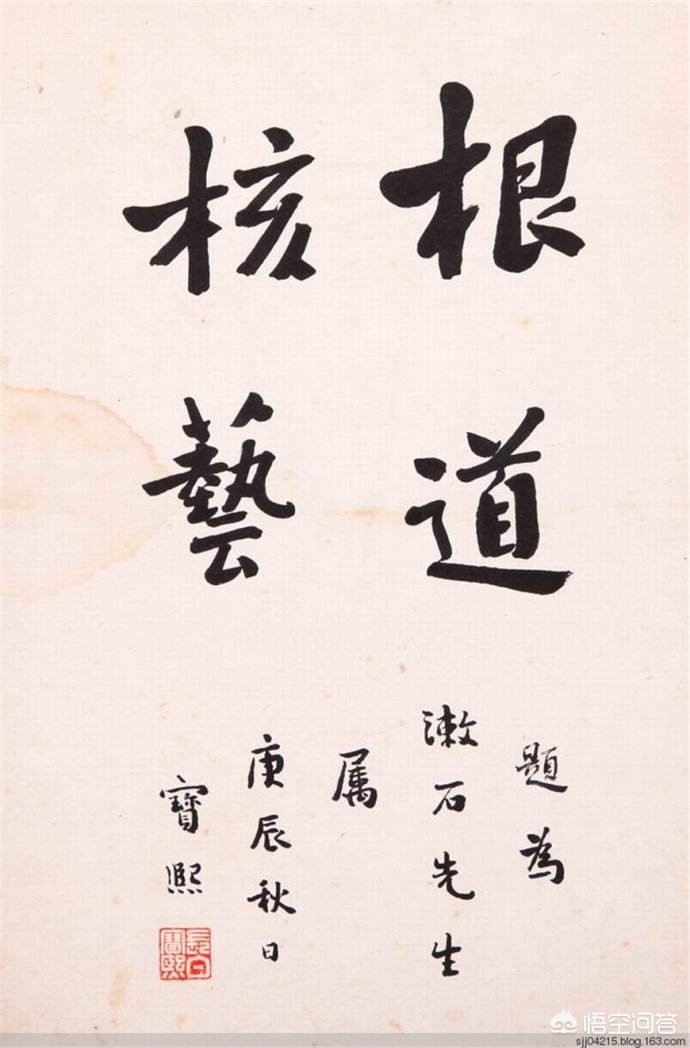 根道
核藝
題為
漱石先生
属
庚辰秋日
寶熙
長白寶熙
悟空问答
sjj04215.blog.163.com